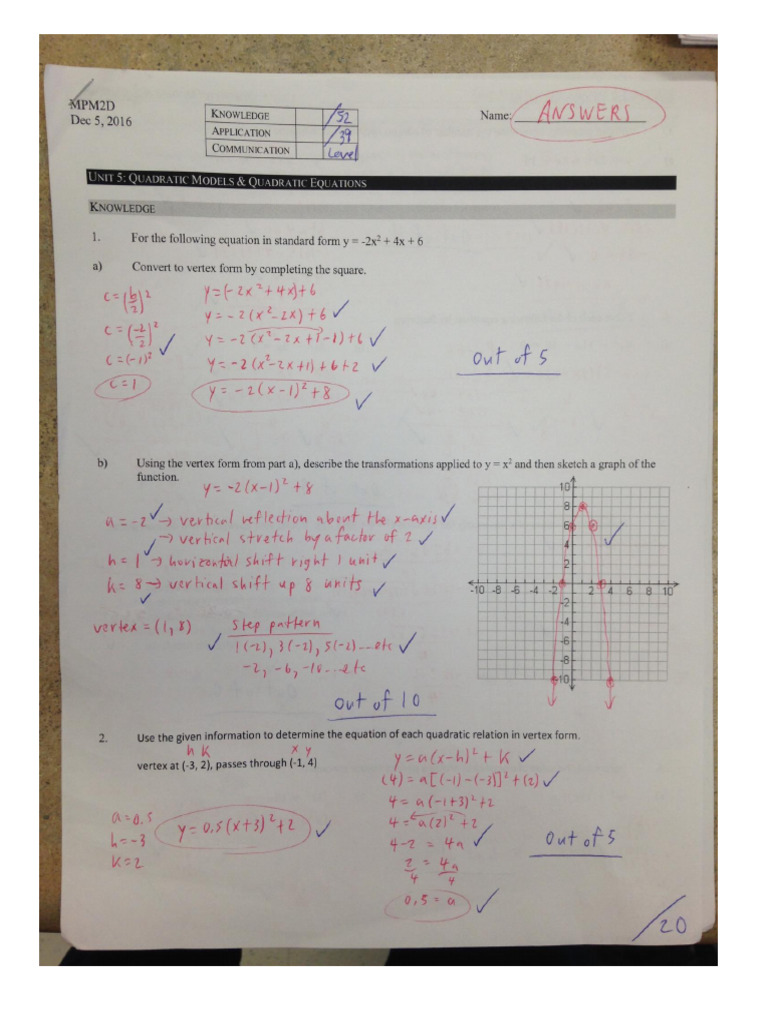 MPM2D
Dec 5, 2016
KNOWLEDGE /52
APPLICATION /39
COMMUNICATION Level
Name: ANSWERS
UNIT 5: QUADRATIC MODELS & QUADRATIC EQUATIONS
KNOWLEDGE
1. For the following equation in standard form y = -2x² + 4x + 6
a) Convert to vertex form by completing the square.
c = (b/2)²
c = (-2/2)²
c = (-1)²
c = 1
y = (-2x² + 4x) + 6
y = -2(x² - 2x) + 6
y = -2(x² - 2x + 1 - 1) + 6
y = -2(x² - 2x + 1) + 6 + 2
y = -2(x - 1)² + 8
out of 5
b) Using the vertex form from part a), describe the transformations applied to y = x² and then sketch a graph of the
function.
y = -2(x-1)² + 8
a = -2 → vertical reflection about the x-axis
→ vertical stretch by a factor of 2
h = 1 → horizontal shift right 1 unit
k = 8 → vertical shift up 8 units
vertex = (1, 8)
step pattern
1(-2), 3(-2), 5(-2)...etc
-2, -6, -10...etc
10
8
6
4
2
-10 -8 -6 -4 -2 2 4 6 8 10
-2
-4
-6
-8
-10
out of 10
2. Use the given information to determine the equation of each quadratic relation in vertex form.
h k x y
vertex at (-3, 2), passes through (-1, 4)
a = 0.5
h = -3
k = 2
y = 0.5(x+3)² + 2
y = a(x-h)² + k
(4) = a[(-1) - (-3)]² + (2)
4 = a(-1+3)² + 2
4 = a(2)² + 2
4 - 2 = 4a
2/4 = 4a/4
0.5 = a
out of 5
/20